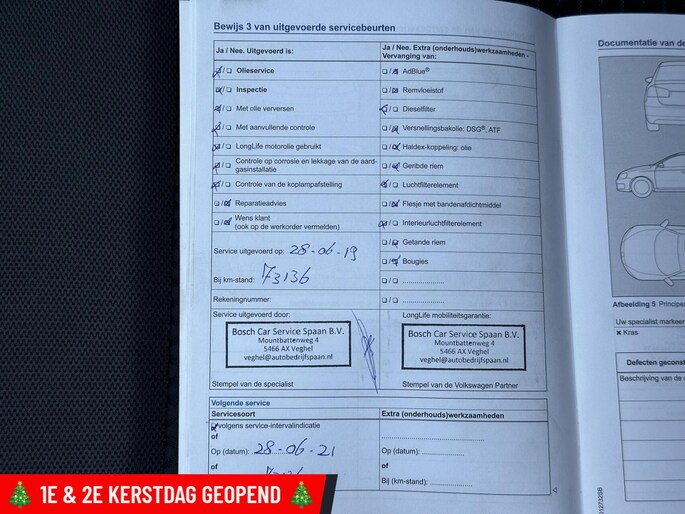 Bewijs 3 van uitgevoerde servicebeurten
Ja / Nee. Uitgevoerd is:
Olieservice
Inspectie
Met olie verversen
Met aanvullende controle
LongLife motorolie gebruikt
Controle op corrosie en lekkage van de aard-
gasinstallatie
Controle van de koplampafstelling
Reparatieadvies
Wens klant
(ook op de werkorder vermelden)
Service uitgevoerd op: 28-06-19
Bij km-stand: 73136
Rekeningnummer:
Service uitgevoerd door:
Bosch Car Service Spaan B.V.
Mountbattenweg 4
5466 AX Veghel
veghel@autobedrijfspaan.nl
Stempel van de specialist
Ja / Nee. Extra (onderhouds)werkzaamheden -
Vervanging van:
AdBlue®
Remvloeistof
Dieselfilter
Versnellingsbakolie: DSG®, ATF
Haldex-koppeling: olie
Geribde riem
Luchtfilterelement
Flesje met bandenafdichtmiddel
Interieurluchtfilterelement
Getande riem
Bougies
LongLife mobiliteitsgarantie:
Bosch Car Service Spaan B.V.
Mountbattenweg 4
5466 AX Veghel
veghel@autobedrijfspaan.nl
Stempel van de Volkswagen Partner
Volgende service
Servicesoort
volgens service-intervalindicatie
of
Op (datum): 28-06-21
of
Extra (onderhouds)werkzaamheden
of
Op (datum):
of
Bij (km-stand):
Documentatie van de
Afbeelding 5 Principe
Uw specialist markeer
× Kras
Defecten geconst
Beschrijving van de
1E & 2E KERSTDAG GEOPEND